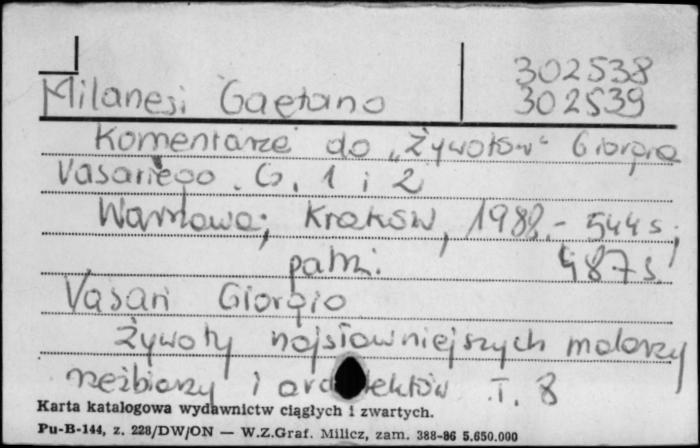 302538
Milanesi Gaetano 302539
Komentarze do „Żywotów" Giorgia
Vasariego. G. 1 i 2
Warszawa; Kraków, 1988.- 544 s;
patrz: 487 s.
Vasari Giorgio
Żywoty najsławniejszych malarzy
rzeźbiarzy i architektów T. 8
Karta katalogowa wydawnictw ciągłych i zwartych.
Pu-B-144, z. 228/DW/ON — W.Z.Graf. Milicz, zam. 388-86 5.650.000